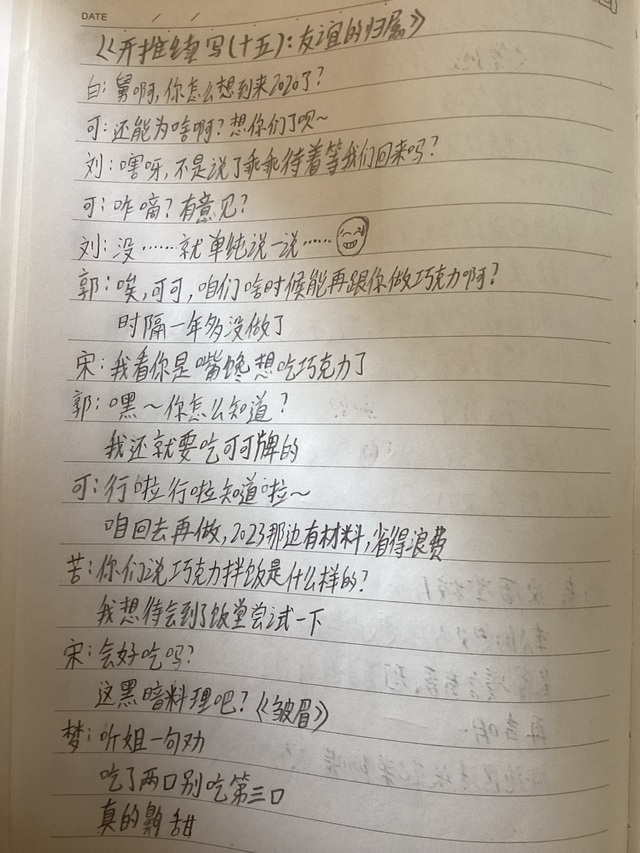 DATE / /
《开推续写(十五):友谊的归属》
白:舅啊,你怎么想到来2020了?
可:还能为啥啊?想你们了呗~
刘:嗐呀,不是说了乖乖待着等我们回来吗?
可:咋嘀?有意见?
刘:没……就单纯说一说……
郭:唉,可可,咱们啥时候能再跟你做巧克力啊?
时隔一年多没做了
宋:我看你是嘴馋想吃巧克力了
郭:嘿~你怎么知道?
我还就要吃可可牌的
可:行啦行啦知道啦~
咱回去再做,2023那边有材料,省得浪费
苦:你们说巧克力拌饭是什么样的?
我想待会到了饭堂尝试一下
宋:会好吃吗?
这黑暗料理吧?《皱眉》
梦:听姐一句劝
吃了两口别吃第三口
真的 甜